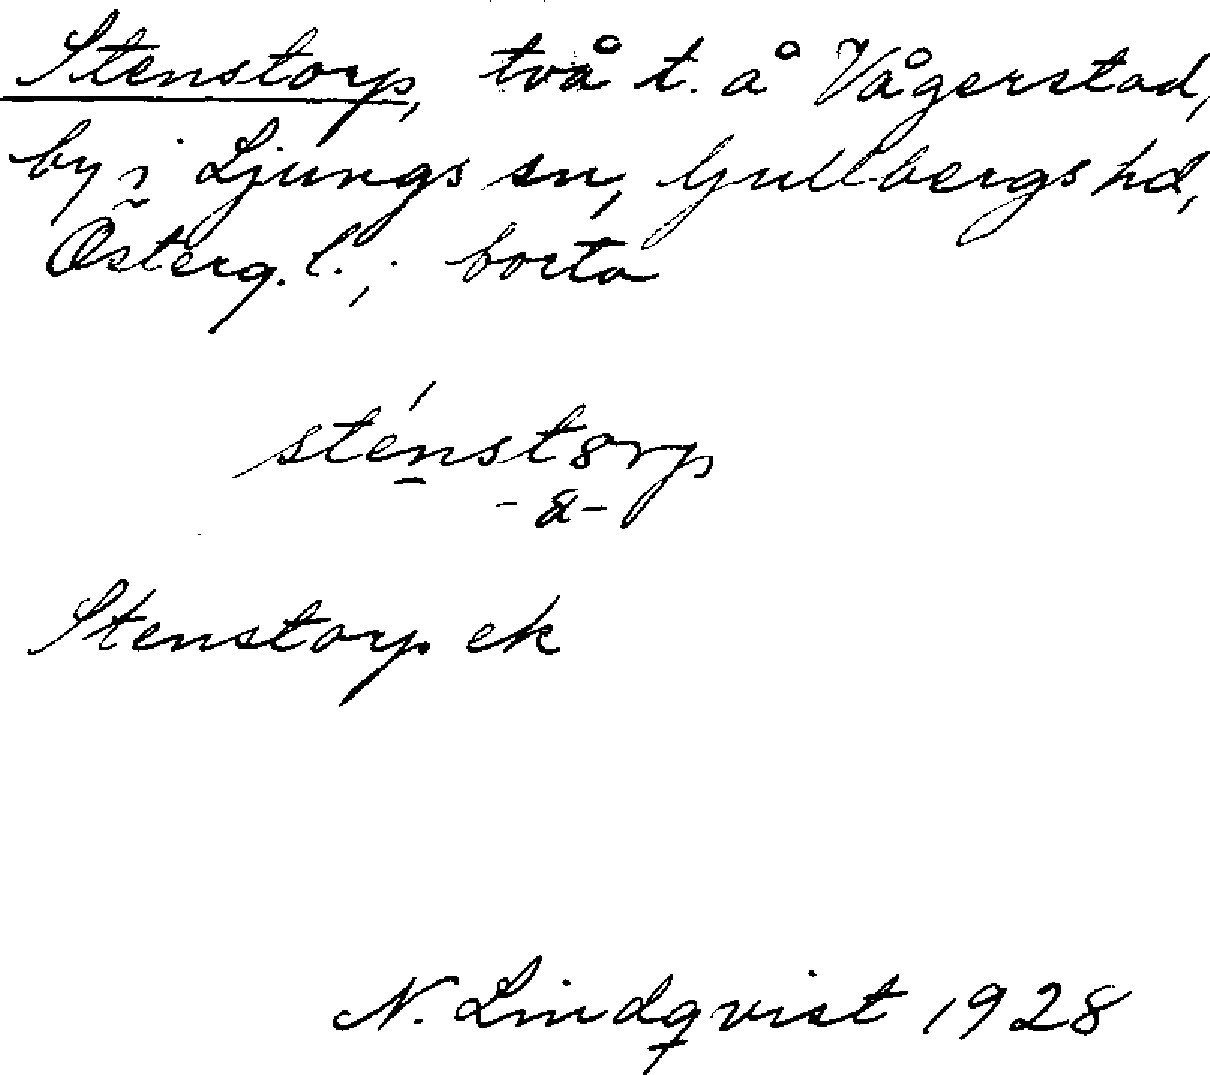 Stenstorp, två t. å Vågerstad,
by i Ljungs sn, Gullbergs hd,
Österg. l.; borta
sténstørp
-a-
Stenstorp ek
N. Lindqvist 1928